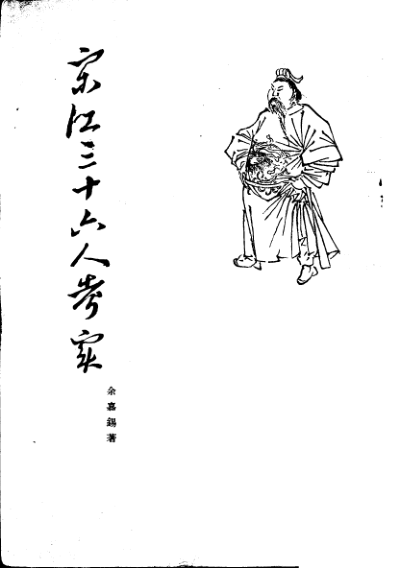 宋江三十六人考实
余嘉錫著